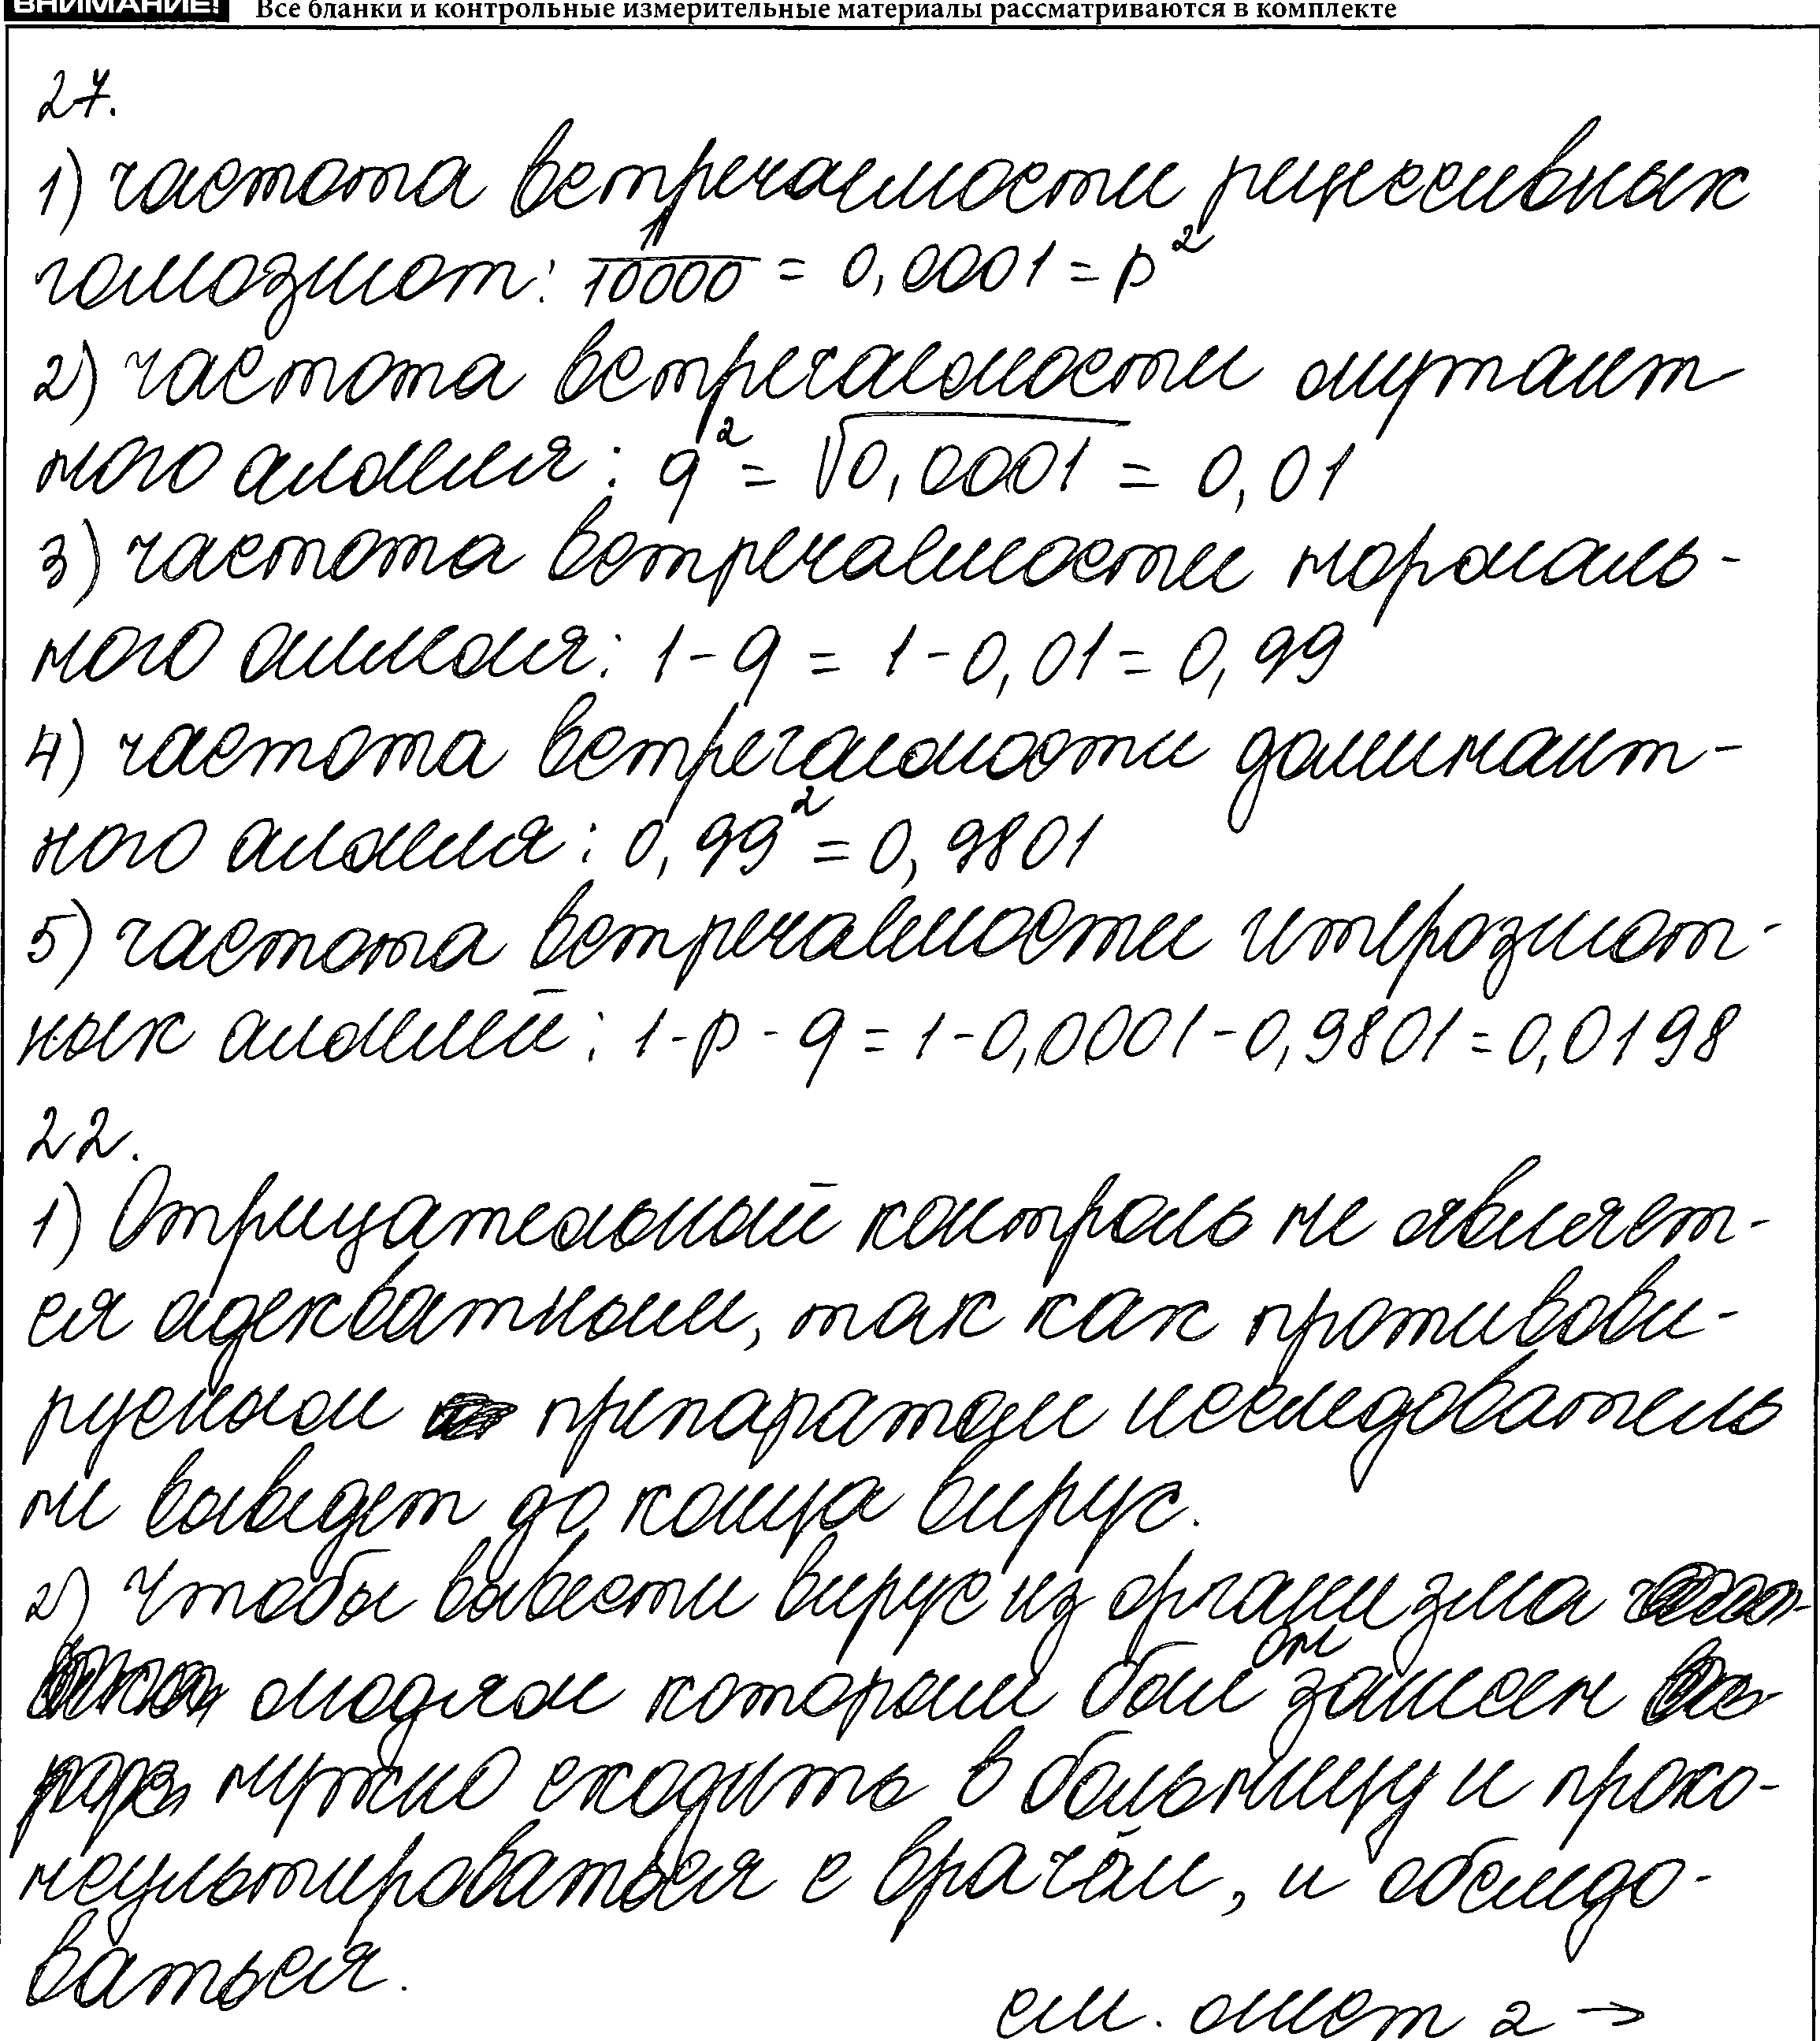 ВНИМАНИЕ! Все бланки и контрольные измерительные материалы рассматриваются в комплекте
27.
1) частота встречаемости рецессивных
гомозигот: 1/10000 = 0,0001 = p²
2) частота встречаемости мутант
ного аллеля: q² = √0,0001 = 0,01
3) частота встречаемости нормаль-
ного аллеля: 1 - q = 1 - 0,01 = 0,99
4) частота встречаемости доминант-
ного аллеля: 0,99² = 0,9801
5) частота встречаемости гетерозигот-
ных аллелей: 1 - p - q = 1 - 0,0001 - 0,9801 = 0,0198
22.
1) Отрицательный контроль не являет-
ся адекватным, так как противови-
русным препаратом исследователь
не выведет до конца вирус.
2) Чтобы вывести вирус из организма
людям которым был он занесен
нужно сходить в больницу и проко-
нсультироваться с врачом, и обследо-
ваться.
см. лист 2 →